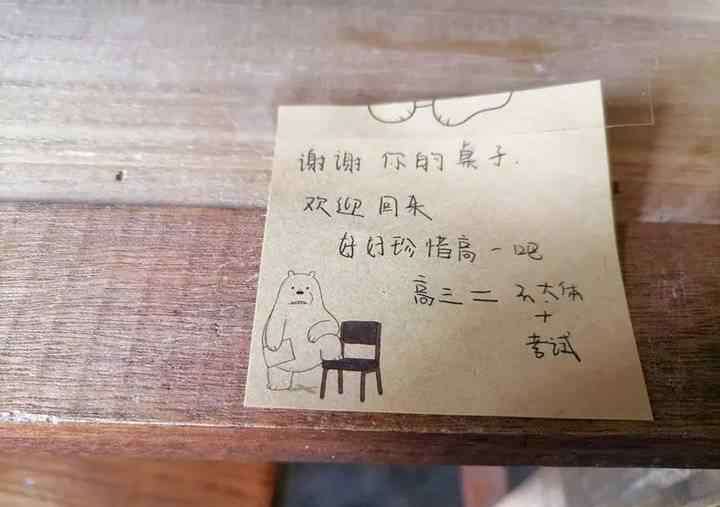 谢谢 你的桌子.
欢迎回来
好好珍惜高一吧
高三二 天大体
+
考试